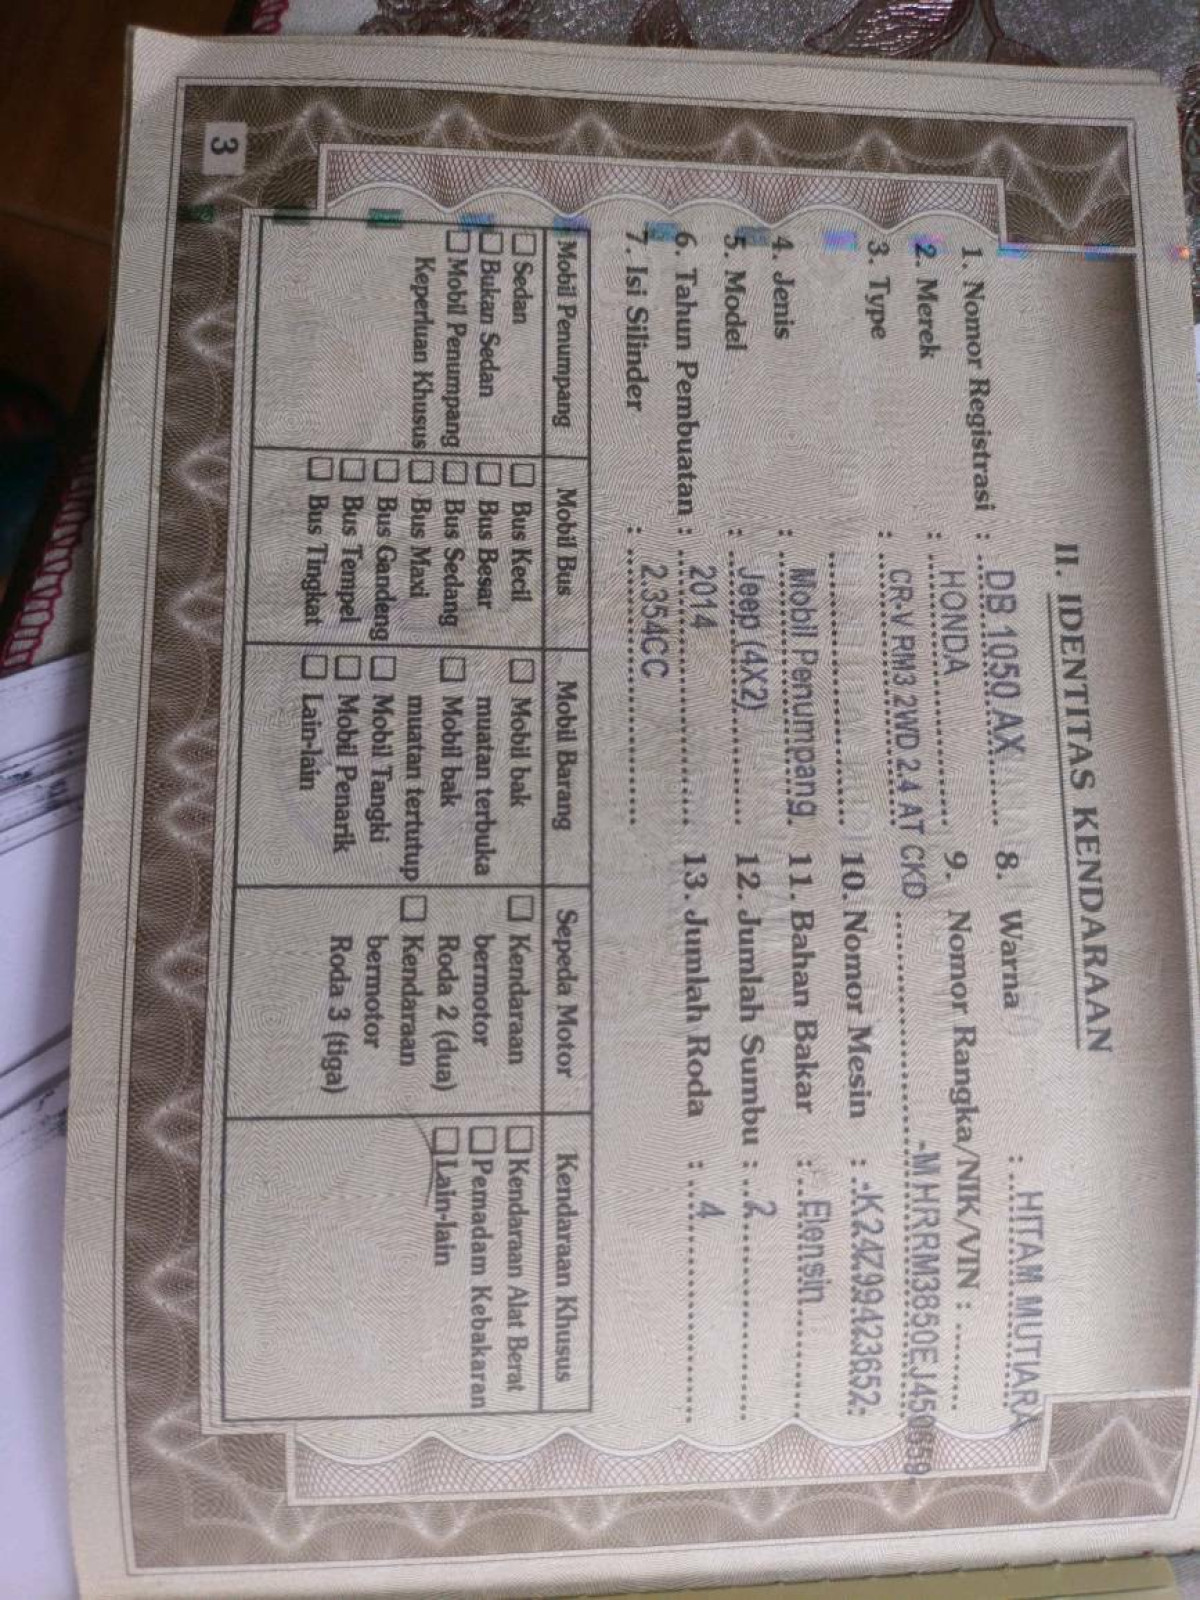 II. IDENTITAS KENDARAAN
1. Nomor Registrasi : DB 1050 AX
2. Merek : HONDA
3. Type : CR-V RM3 2WD 2.4 AT CKD
4. Jenis : Mobil Penumpang
5. Model : Jeep (4X2)
6. Tahun Pembuatan : 2014
7. Isi Silinder : 2.354CC
8. Warna : HITAM MUTIARA
9. Nomor Rangka/NIK/VIN :
10. Nomor Mesin : -K24Z99423652-
11. Bahan Bakar : Elensin
12. Jumlah Sumbu : 2
13. Jumlah Roda : 4
Mobil Penumpang
Sedan
Bukan Sedan
Mobil Penumpang
Keperluan Khusus
Mobil Bus
Bus Kecil
Bus Besar
Bus Sedang
Bus Maxi
Bus Gandeng
Bus Tempel
Bus Tingkat
Mobil Barang
Mobil bak
muatan terbuka
Mobil bak
muatan tertutup
Mobil Tangki
Mobil Penarik
Lain-lain
Sepeda Motor
Kendaraan
bermotor
Roda 2 (dua)
Kendaraan
bermotor
Roda 3 (tiga)
Kendaraan Khusus
Kendaraan Alat Berat
Pemadam Kebakaran
Lain-lain
3